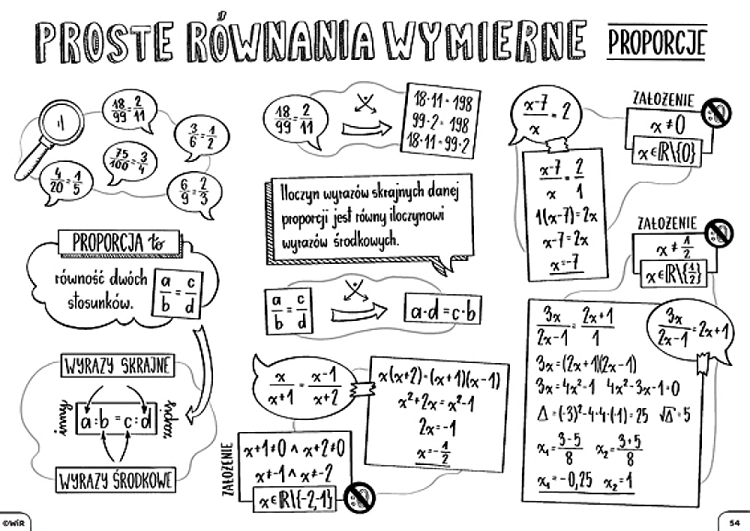 PROSTE RÓWNANIA WYMIERNE
PROPORCJE
18/99 = 2/11
3/6 = 1/2
75/100 = 3/4
4/20 = 1/5
6/9 = 2/3
PROPORCJA to
równość dwóch
stosunków.
a/b = c/d
WYRAZY SKRAJNE
a:b = c:d
WYRAZY ŚRODKOWE
18/99 = 2/11
18·11 = 198
99·2 = 198
18·11 = 99·2
Iloczyn wyrazów skrajnych danej
proporcji jest równy iloczynowi
wyrazów środkowych.
a/b = c/d
a·d = c·b
x/(x+1) = (x-1)/(x+2)
x(x+2) = (x+1)(x-1)
x²+2x = x²-1
2x = -1
x = -1/2
ZAŁOŻENIE
x+1≠0 ∧ x+2≠0
x≠-1 ∧ x≠-2
x∈ℝ\{-2,-1}
(x-7)/x = 2
(x-7)/x = 2/1
1(x-7) = 2x
x-7 = 2x
x = -7
ZAŁOŻENIE
x≠0
x∈ℝ\{0}
ZAŁOŻENIE
x≠1/2
x∈ℝ\{1/2}
3x/(2x-1) = 2x+1
3x/(2x-1) = (2x+1)/1
3x = (2x+1)(2x-1)
3x = 4x²-1 4x²-3x-1=0
Δ = (-3)²-4·4·(-1) = 25 √Δ = 5
x₁ = (3-5)/8 x₂ = (3+5)/8
x₁ = -0,25 x₂ = 1
©WiR
54